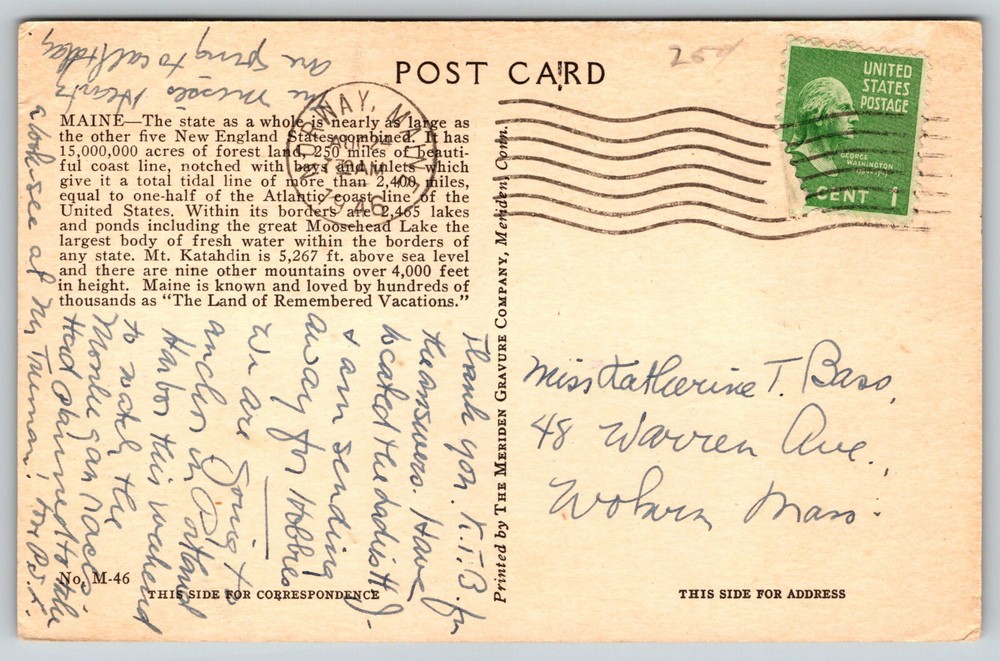 POST CARD
25¢
UNITED
STATES
POSTAGE
GEORGE
WASHINGTON
CENT 1
WAY, MA
AM
1946
MAINE—The state as a whole is nearly as large as
the other five New England States combined. It has
15,000,000 acres of forest land, 250 miles of beauti-
ful coast line, notched with bays and inlets which
give it a total tidal line of more than 2,400 miles,
equal to one-half of the Atlantic coast line of the
United States. Within its borders are 2,465 lakes
and ponds including the great Moosehead Lake the
largest body of fresh water within the borders of
any state. Mt. Katahdin is 5,267 ft. above sea level
and there are nine other mountains over 4,000 feet
in height. Maine is known and loved by hundreds of
thousands as "The Land of Remembered Vacations."
Thank you K.T.B. for
the answers. Have
located the
& am sending
away for Hobbies
We are going to
anchor in Portland
Harbor this weekend
to watch the
Monhegan race.
Had planned to take
a look see at Mr. Truman!
The Misses
are going to call today
Printed by THE MERIDEN GRAVURE COMPANY, Meriden, Conn.
Miss Katherine T. Baso,
48 Warren Ave.,
Woburn Mass.
No. M-46
THIS SIDE FOR CORRESPONDENCE
THIS SIDE FOR ADDRESS